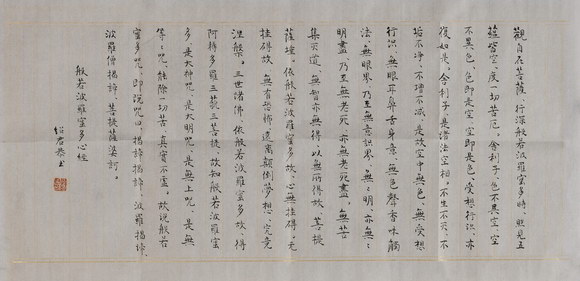 觀自在菩薩,行深般若波羅蜜多時,照見五
蘊皆空,度一切苦厄。舍利子,色不異空,空
不異色,色即是空,空即是色。受想行识,亦
復如是。舍利子,是諸法空相,不生不灭,不
垢不净,不增不减,是故空中無色,無受想
行识,無眼耳鼻舌身意,無色聲香味觸
法,無眼界乃至無意識界,無々明,亦無々
明盡,乃至無老死,亦無老死盡,無苦
集灭道,無智亦無得,以無所得故,菩提
薩埵,依般若波羅蜜多故,心無挂碍,无
挂碍故,無有恐怖,遠離顛倒夢想,究竟
涅槃。三世諸佛,依般若波羅蜜多故,得
阿耨多羅三藐三菩提,故知般若波羅蜜
多,是大神咒,是大明咒,是無上咒,是無
等々咒,能除一切苦,真實不虛。故說般若
蜜多咒,即說咒曰,揭諦揭諦,波羅揭諦,
波羅僧揭諦,菩提薩婆訶。
般若波羅蜜多心經